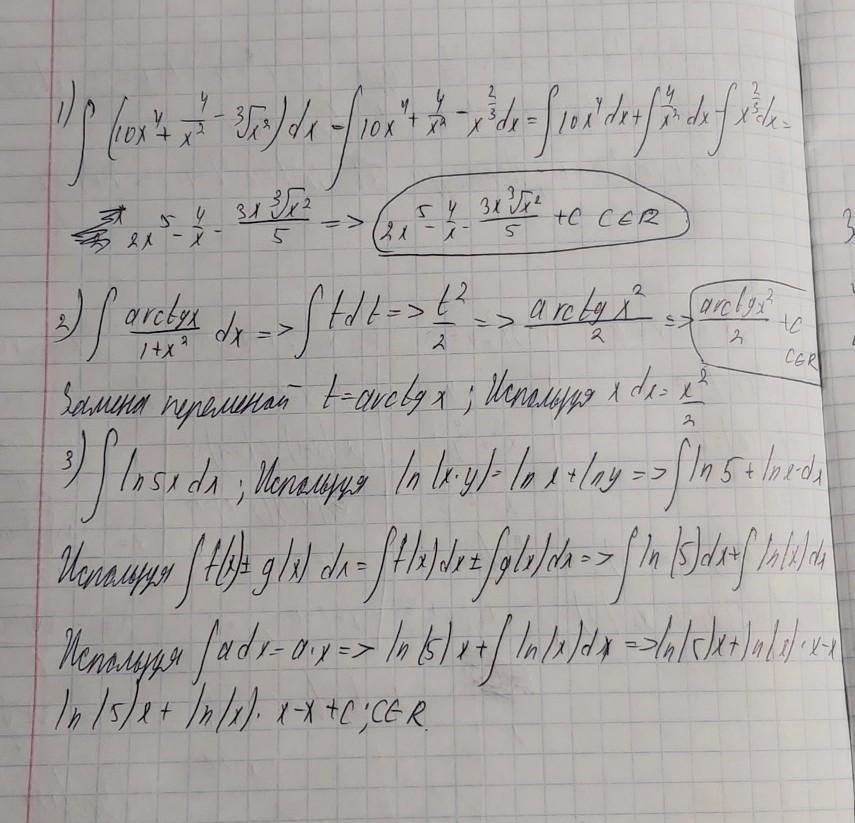 1) ∫ (10x⁴ + 4/x² - ∛x²) dx = ∫ 10x⁴ + 4/x² - x^(2/3) dx = ∫ 10x⁴ dx + ∫ 4/x² dx - ∫ x^(2/3) dx =
2x⁵ - 4/x - 3x∛x²/5 => 2x⁵ - 4/x - 3x∛x²/5 + C C∈R
2) ∫ arctgx/(1+x²) dx => ∫ t dt => t²/2 => arctg x²/2 => arctgx²/2 + C C∈R
Замена переменой t = arctg x ; Используя x dx = x²/2
3) ∫ ln5x dx ; Используя ln(x·y) = ln x + ln y => ∫ ln 5 + lnx·dx
Используя ∫ f(x) ± g(x) dx = ∫ f(x) dx ± ∫ g(x) dx => ∫ ln(5) dx + ∫ ln(x) dx
Используя ∫ a dx = a·x => ln(5)x + ∫ ln(x) dx => ln(5)x + ln(x)·x-x
ln(5)x + ln(x)·x-x + C ; C∈R.